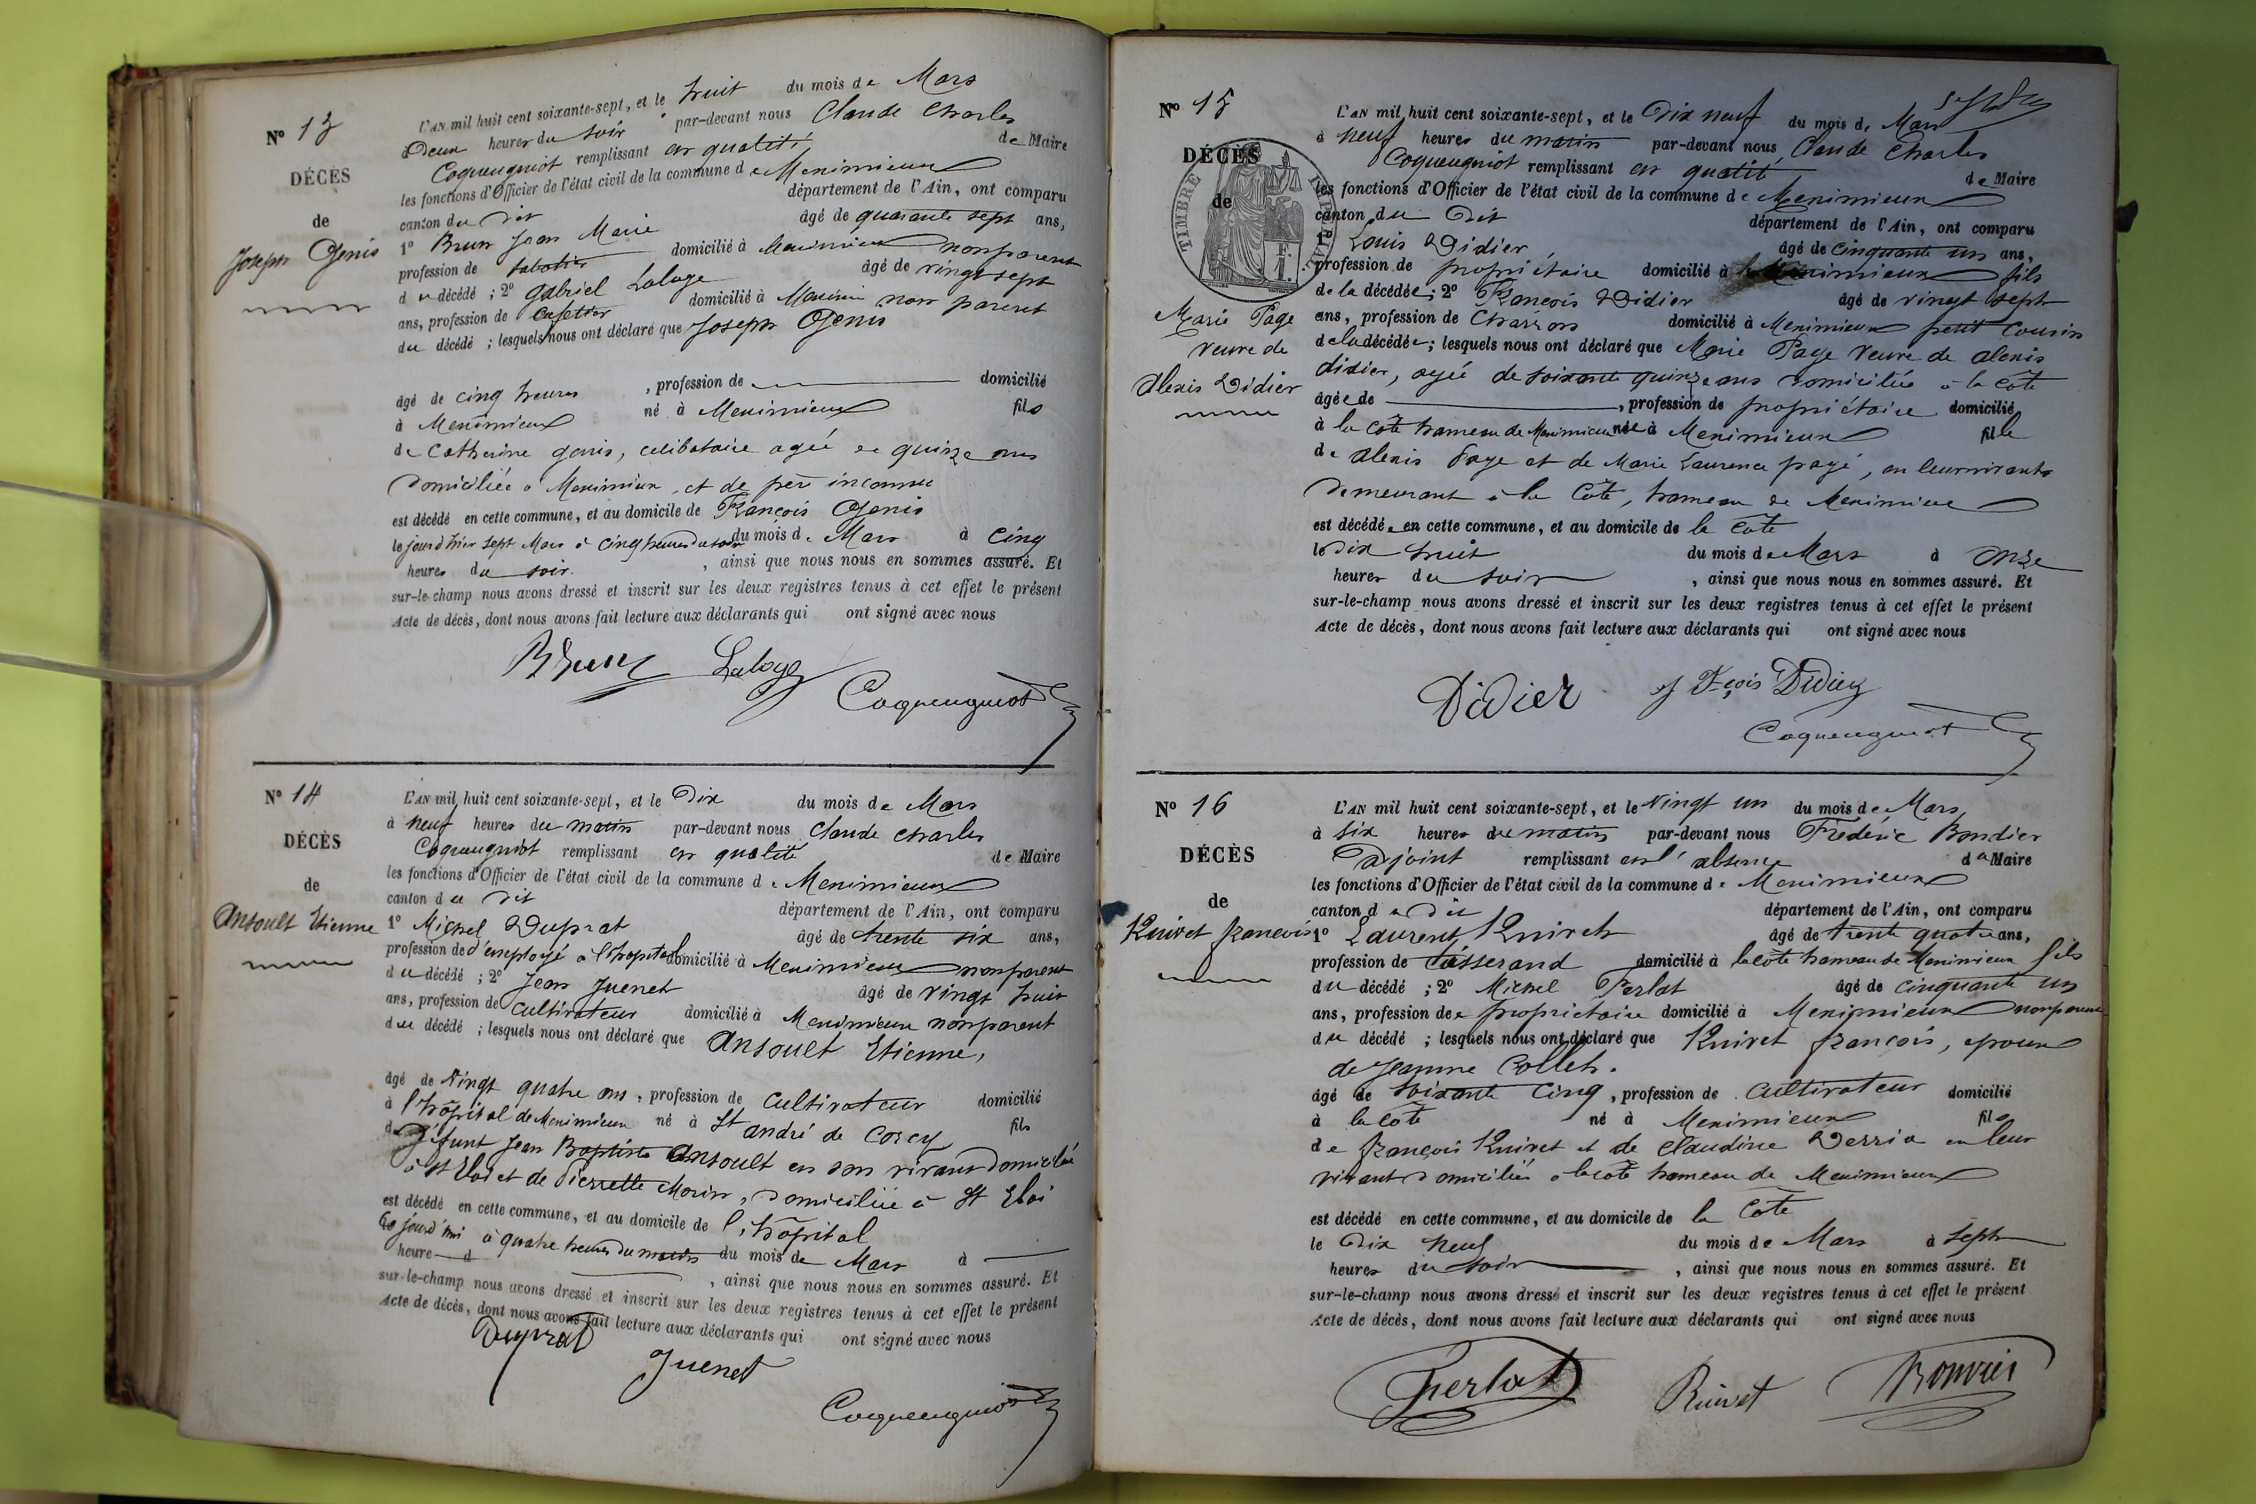 N° 13
DÉCÈS
de
Joseph Genis
L'AN mil huit cent soixante-sept, et le huit du mois de Mars
à Deux heures du soir par-devant nous Claude Charles
Coqueugniot remplissant en qualité de Maire
les fonctions d'Officier de l'état civil de la commune de Meximieux
canton du dit département de l'Ain, ont comparu
1° Brun Jean Marie âgé de quarante sept ans,
profession de sabotier domicilié à Meximieux non parent
du décédé ; 2° Gabriel Laloge âgé de vingt sept
ans, profession de Cafetier domicilié à Meximieux non parent
du décédé ; lesquels nous ont déclaré que Joseph Genis
âgé de cinq heures , profession de domicilié
à Meximieux né à Meximieux fils
de Catherine genis, célibataire agée de quinze ans
Domiciliée a Meximieux, et de père inconnu
est décédé en cette commune, et au domicile de François Genis
le jour d'hier sept Mars à cinq heures du soir du mois de Mars à cinq
heures du soir. , ainsi que nous nous en sommes assuré. Et
sur-le-champ nous avons dressé et inscrit sur les deux registres tenus à cet effet le présent
Acte de décès, dont nous avons fait lecture aux déclarants qui ont signé avec nous
Brun Laloge
Coqueugniot
N° 14
DÉCÈS
de
Ansoult Etienne
L'AN mil huit cent soixante-sept, et le Dix du mois de Mars
à neuf heures du matin par-devant nous Claude Charles
Coqueugniot remplissant en qualité de Maire
les fonctions d'Officier de l'état civil de la commune de Meximieux
canton du dit département de l'Ain, ont comparu
1° Michel Duprat âgé de trente six ans,
profession de d'employé à l'hopital domicilié à Meximieux non parent
du décédé ; 2° Jean Juenet âgé de vingt huit
ans, profession de cultivateur domicilié à Meximieux non parent
du décédé ; lesquels nous ont déclaré que Ansoult Etienne,
âgé de vingt quatre ans, profession de cultivateur domicilié
à l'hôpital de Meximieux né à St andré de Corcy fils
de Défunt Jean Baptiste Ansoult en son vivant domicilié
à St Eloi et de Pierrette Morin, domiciliée à St Eloi
est décédé en cette commune, et au domicile de l'hôpital
Ce jourd'hui à quatre heures du matin du mois de Mars à
heure d , ainsi que nous nous en sommes assuré. Et
sur-le-champ nous avons dressé et inscrit sur les deux registres tenus à cet effet le présent
Acte de décès, dont nous avons fait lecture aux déclarants qui ont signé avec nous
Duprat
Juenet
Coqueugniot
N° 15
DÉCÈS
de
TIMBRE IMPÉRIAL
Marie Page
veuve de
Alexis Didier
L'AN mil huit cent soixante-sept, et le Dix neuf du mois de Mars
à neuf heures du matin par-devant nous Claude Charles
Coqueugniot remplissant en qualité de Maire
les fonctions d'Officier de l'état civil de la commune de Meximieux
canton du Dit département de l'Ain, ont comparu
1° Louis Didier âgé de cinquante un ans,
profession de propriétaire domicilié à Meximieux fils
de la décédée ; 2° François Didier âgé de vingt sept
ans, profession de Charron domicilié à Meximieux petit cousin
de la décédée ; lesquels nous ont déclaré que Marie Page veuve de alexis
didier, agée de soixante quinze ans domiciliée à la Côte
âgée de , profession de propriétaire domicilié
à la côte hameau de Meximieux née à Meximieux fille
de Alexis Page et de Marie Laurence pagé, en leur vivants
Demeurant à la Côte, hameau de Meximieux
est décédée en cette commune, et au domicile de la Côte
le dix huit du mois de Mars à onze
heures du soir , ainsi que nous nous en sommes assuré. Et
sur-le-champ nous avons dressé et inscrit sur les deux registres tenus à cet effet le présent
Acte de décès, dont nous avons fait lecture aux déclarants qui ont signé avec nous
Didier fçois Didier
Coqueugniot
N° 16
DÉCÈS
de
Ruivet françois
L'AN mil huit cent soixante-sept, et le vingt un du mois de Mars
à six heures du matin par-devant nous Frédéric
Adjoint remplissant en l'absence du Maire
les fonctions d'Officier de l'état civil de la commune de Meximieux
canton du dit département de l'Ain, ont comparu
1° Laurent Ruivet âgé de trente quatre ans,
profession de tisserand domicilié à la côte hameau de Meximieux fils
du décédé ; 2° Michel Perlat âgé de cinquante un
ans, profession de propriétaire domicilié à Meximieux non parent
du décédé ; lesquels nous ont déclaré que Ruivet françois, époux
de Jeanne Collet.
âgé de soixante cinq, profession de cultivateur domicilié
à la Côte né à Meximieux fils
de françois Ruivet et de Claudine en leur
vivant domiciliés à la côte hameau de Meximieux
est décédé en cette commune, et au domicile de la Côte
le Dix neuf du mois de Mars à sept
heures du soir , ainsi que nous nous en sommes assuré. Et
sur-le-champ nous avons dressé et inscrit sur les deux registres tenus à cet effet le présent
Acte de décès, dont nous avons fait lecture aux déclarants qui ont signé avec nous
Perlat Ruivet